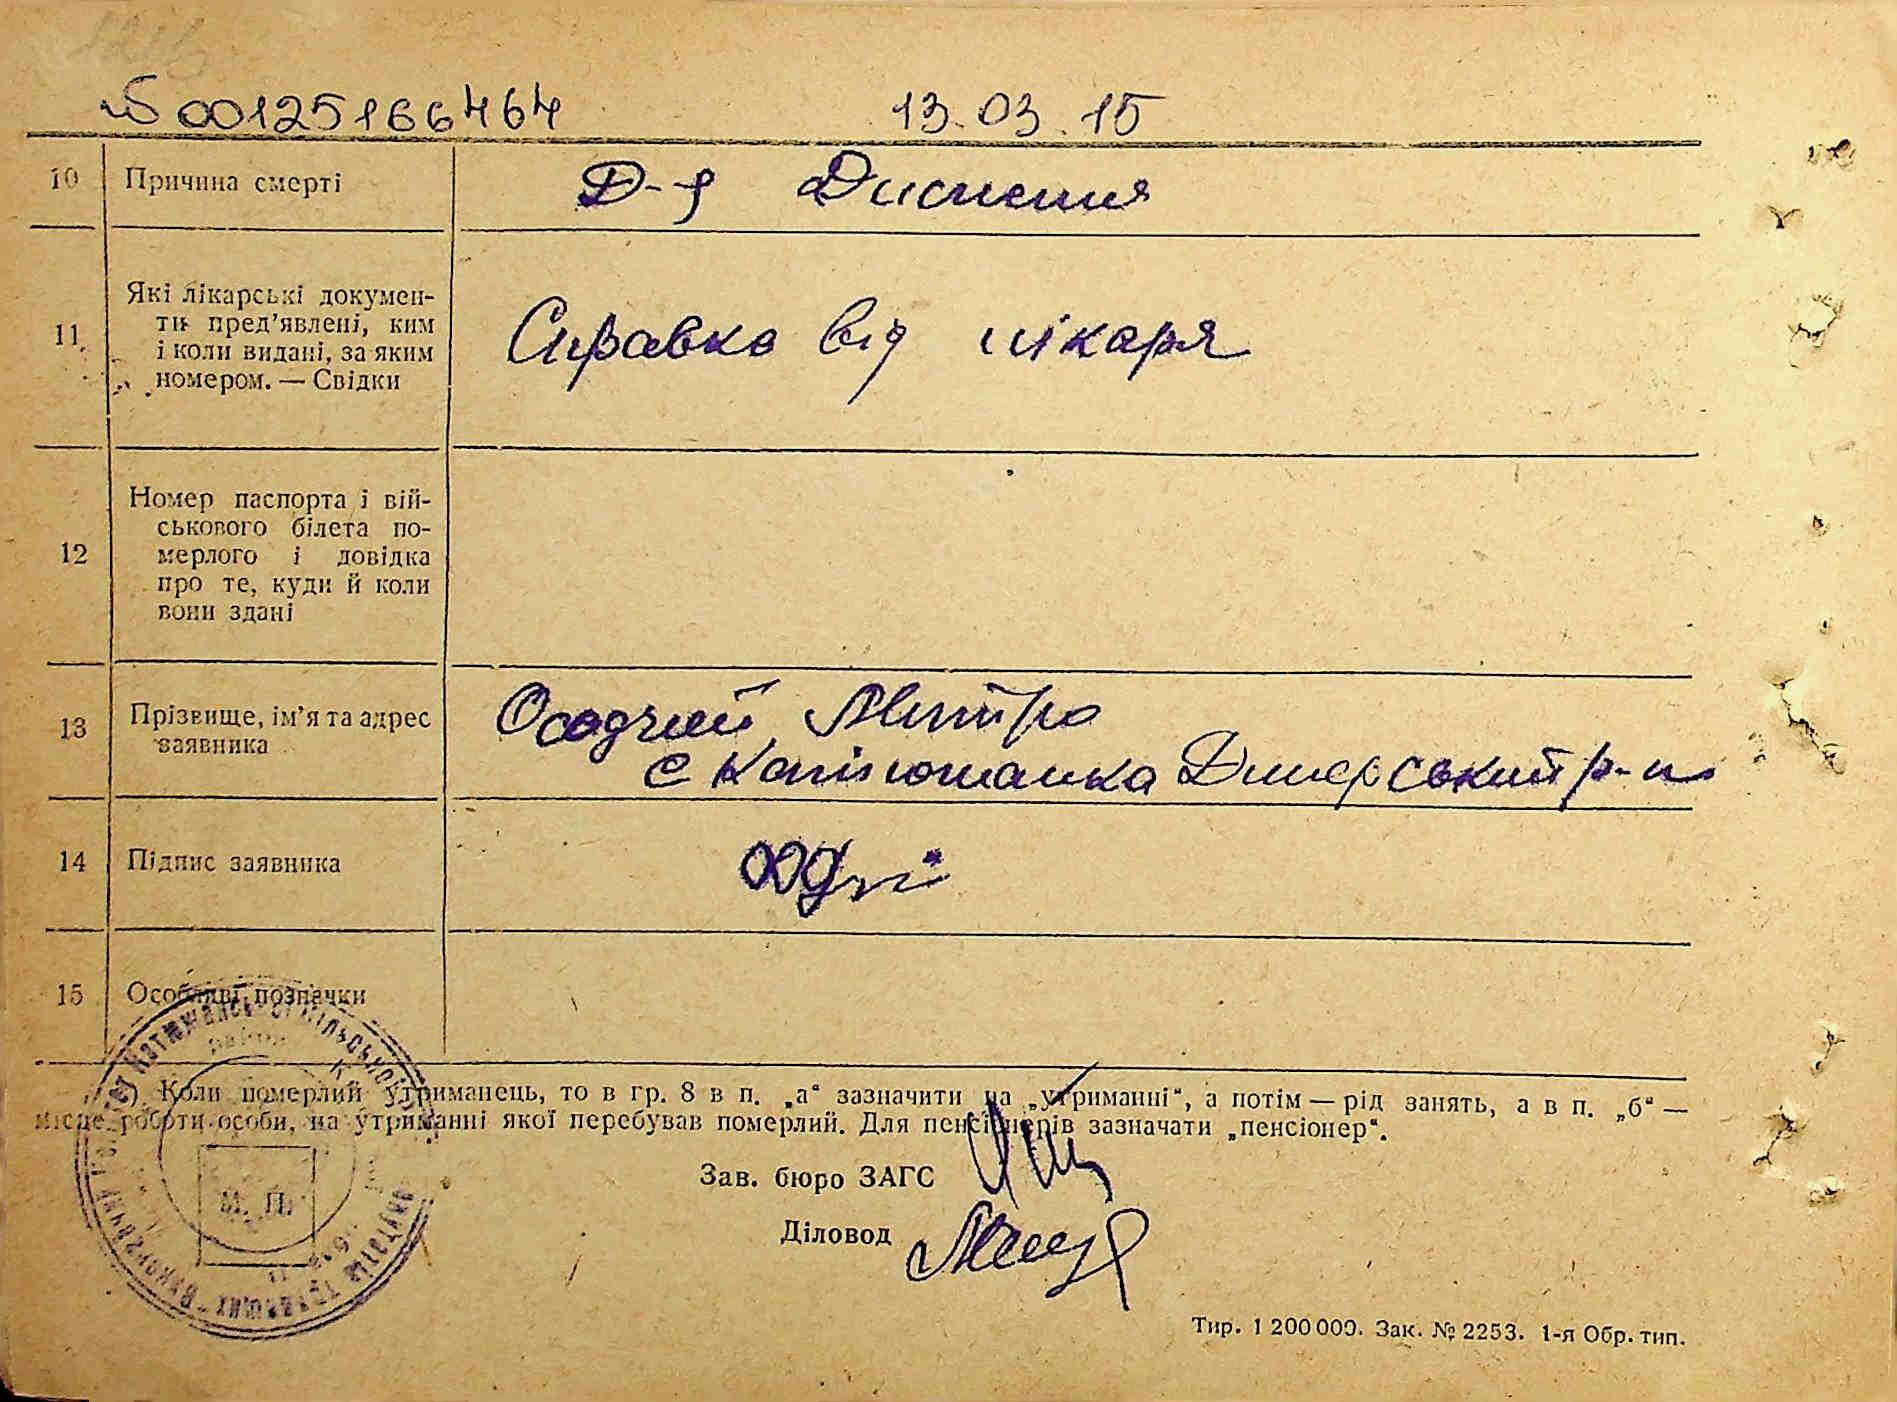 № 00125166464 13.03.15
10 Причина смерті Д-я
11 Які лікарські докумен-
ти пред’явлені, ким
і коли видані, за яким
номером. — Свідки
Справка від лікаря
12 Номер паспорта і вій-
ськового білета по-
мерлого і довідка
про те, куди й коли
вони здані
13 Прізвище, ім’я та адрес
заявника
Осадчий Дмитро
с Катюжанка Димерський р-н
14 Підпис заявника
15 Особливі позначки
Катюжанської сільської
*) Коли померлий утриманець, то в гр. 8 в п. „а“ зазначити на „утриманні“, а потім — рід занять, а в п. „б“ —
місце роботи особи, на утриманні якої перебував померлий. Для пенсіонерів зазначати „пенсіонер“.
Зав. бюро ЗАГС
М. П.
Діловод
Тир. 1 200 000. Зак. № 2253. 1-я Обр. тип.